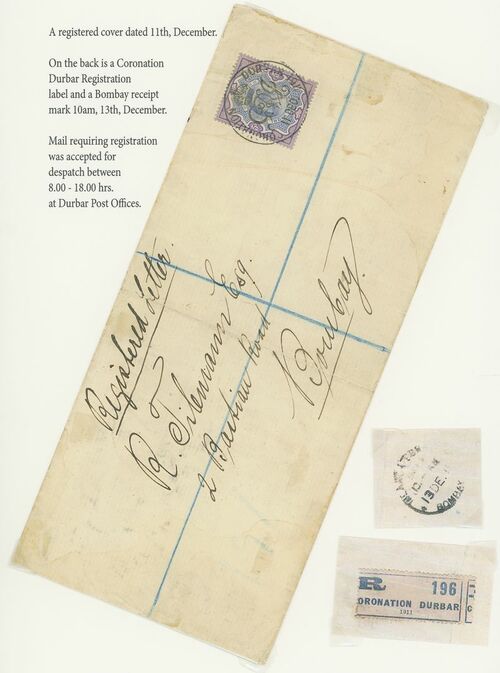 A registered cover dated 11th, December.
On the back is a Coronation
Durbar Registration
label and a Bombay receipt
mark 10am, 13th, December.
Mail requiring registration
was accepted for
despatch between
8.00 - 18.00 hrs.
at Durbar Post Offices.
Registered Letter.
R. Tilemann Esq.
2 Bastian Road
Bombay.
13 DE
BOMBAY
R 196
ORONATION DURBAR
1911